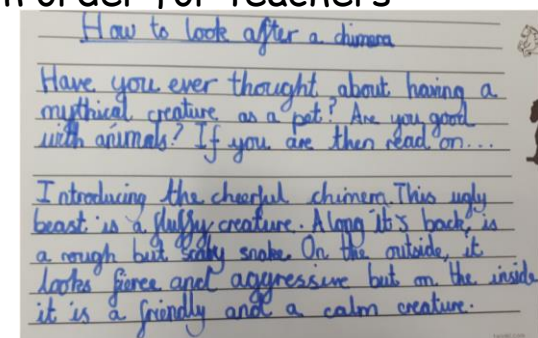 n order for teachers
How to look after a chimera
Have you ever thought about having a
mythical creature as a pet? Are you good
with animals? If you are then read on...
Introducing the cheerful chimera. This ugly
beast is a fluffy creature. Along it's back, is
a rough but scaly snake. On the outside, it
looks fierce and aggressive but on the inside
it is a friendly and a calm creature.